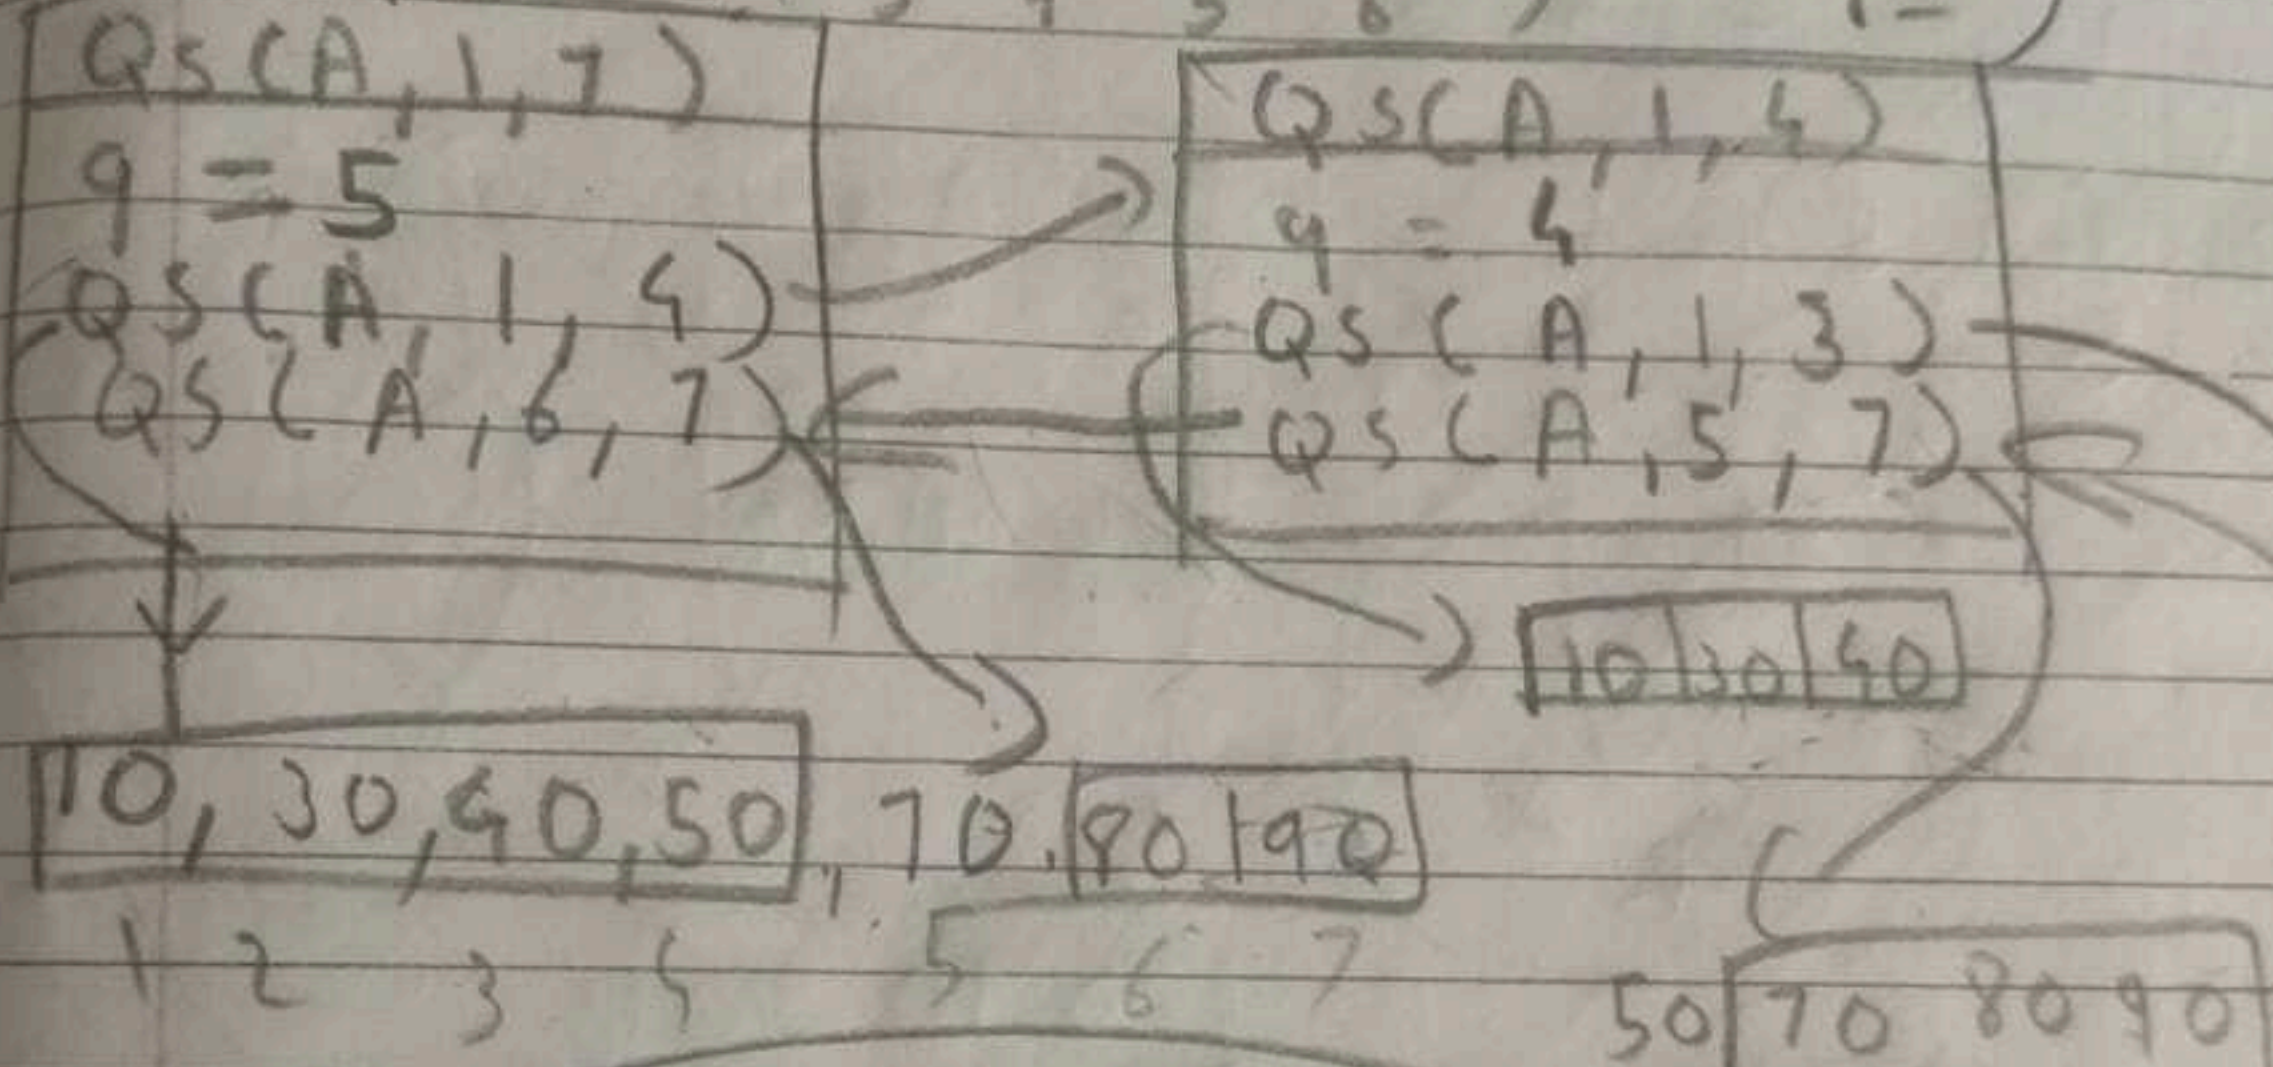 QS(A, 1, 7)
q = 5
QS(A, 1, 4)
QS(A, 6, 7)
QS(A, 1, 4)
q = 4
QS(A, 1, 3)
QS(A, 5, 7)
10 30 40
10, 30, 40, 50, 70, 80 90
1 2 3 4 5 6 7
50 70 80 90